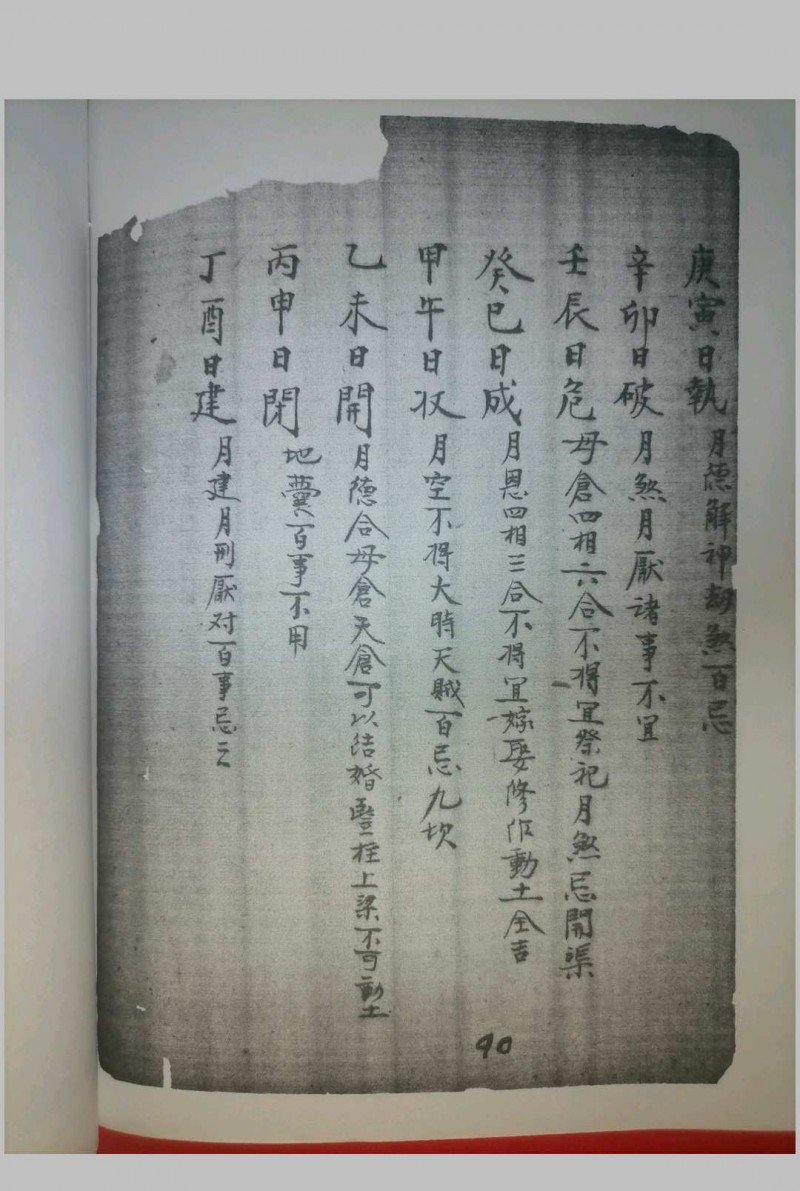 庚寅日執月德解神劫煞百忌
辛卯日破月煞月厭諸事不宜
壬辰日危母倉四相六合不得宜祭祀月煞忌開渠
癸巳日成月恩四相三合不得宜嫁娶修作動土全吉
甲午日収月空不得大時天賊百忌九坎
乙未日開月德合母倉天倉可以結婚豎柱上梁不可動土
丙申日閉地囊百事不用
丁酉日建月建月刑厭对百事忌之
90